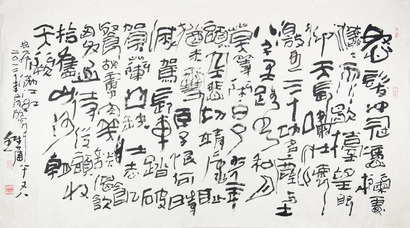 怒髮沖冠憑闌處
瀟瀟雨歇擡望眼
仰天長嘯壯懷
激烈三十功名塵與土
八千里路雲和月
莫等閑白了少年
頭空悲切靖康恥
猶未雪臣子恨何時
滅駕長車踏破
賀蘭山缺壯志
飢餐胡虜肉笑談渴飲
匈奴血待從頭收
拾舊山河朝
天闕